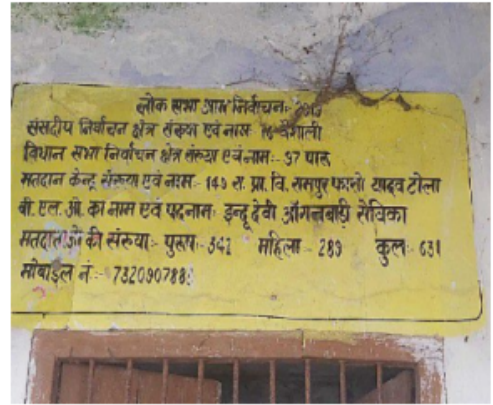 लोक सभा आम निर्वाचन:- 2019
संसदीय निर्वाचन क्षेत्र संख्या एवं नाम: 16 वैशाली
विधान सभा निर्वाचन क्षेत्र संख्या एवं नाम:- 97 पारू
मतदान केन्द्र संख्या एवं नाम:- 149 रा. प्रा. वि. रामपुर फासो यादव टोला
बी. एल. ओ. का नाम एवं पदनाम: इन्दू देवी आँगनबाड़ी सेविका
मतदाताओं की संख्या:- पुरुष:- 342 महिला - 289 कुल:- 631
मोबाईल नं:- 7320907888